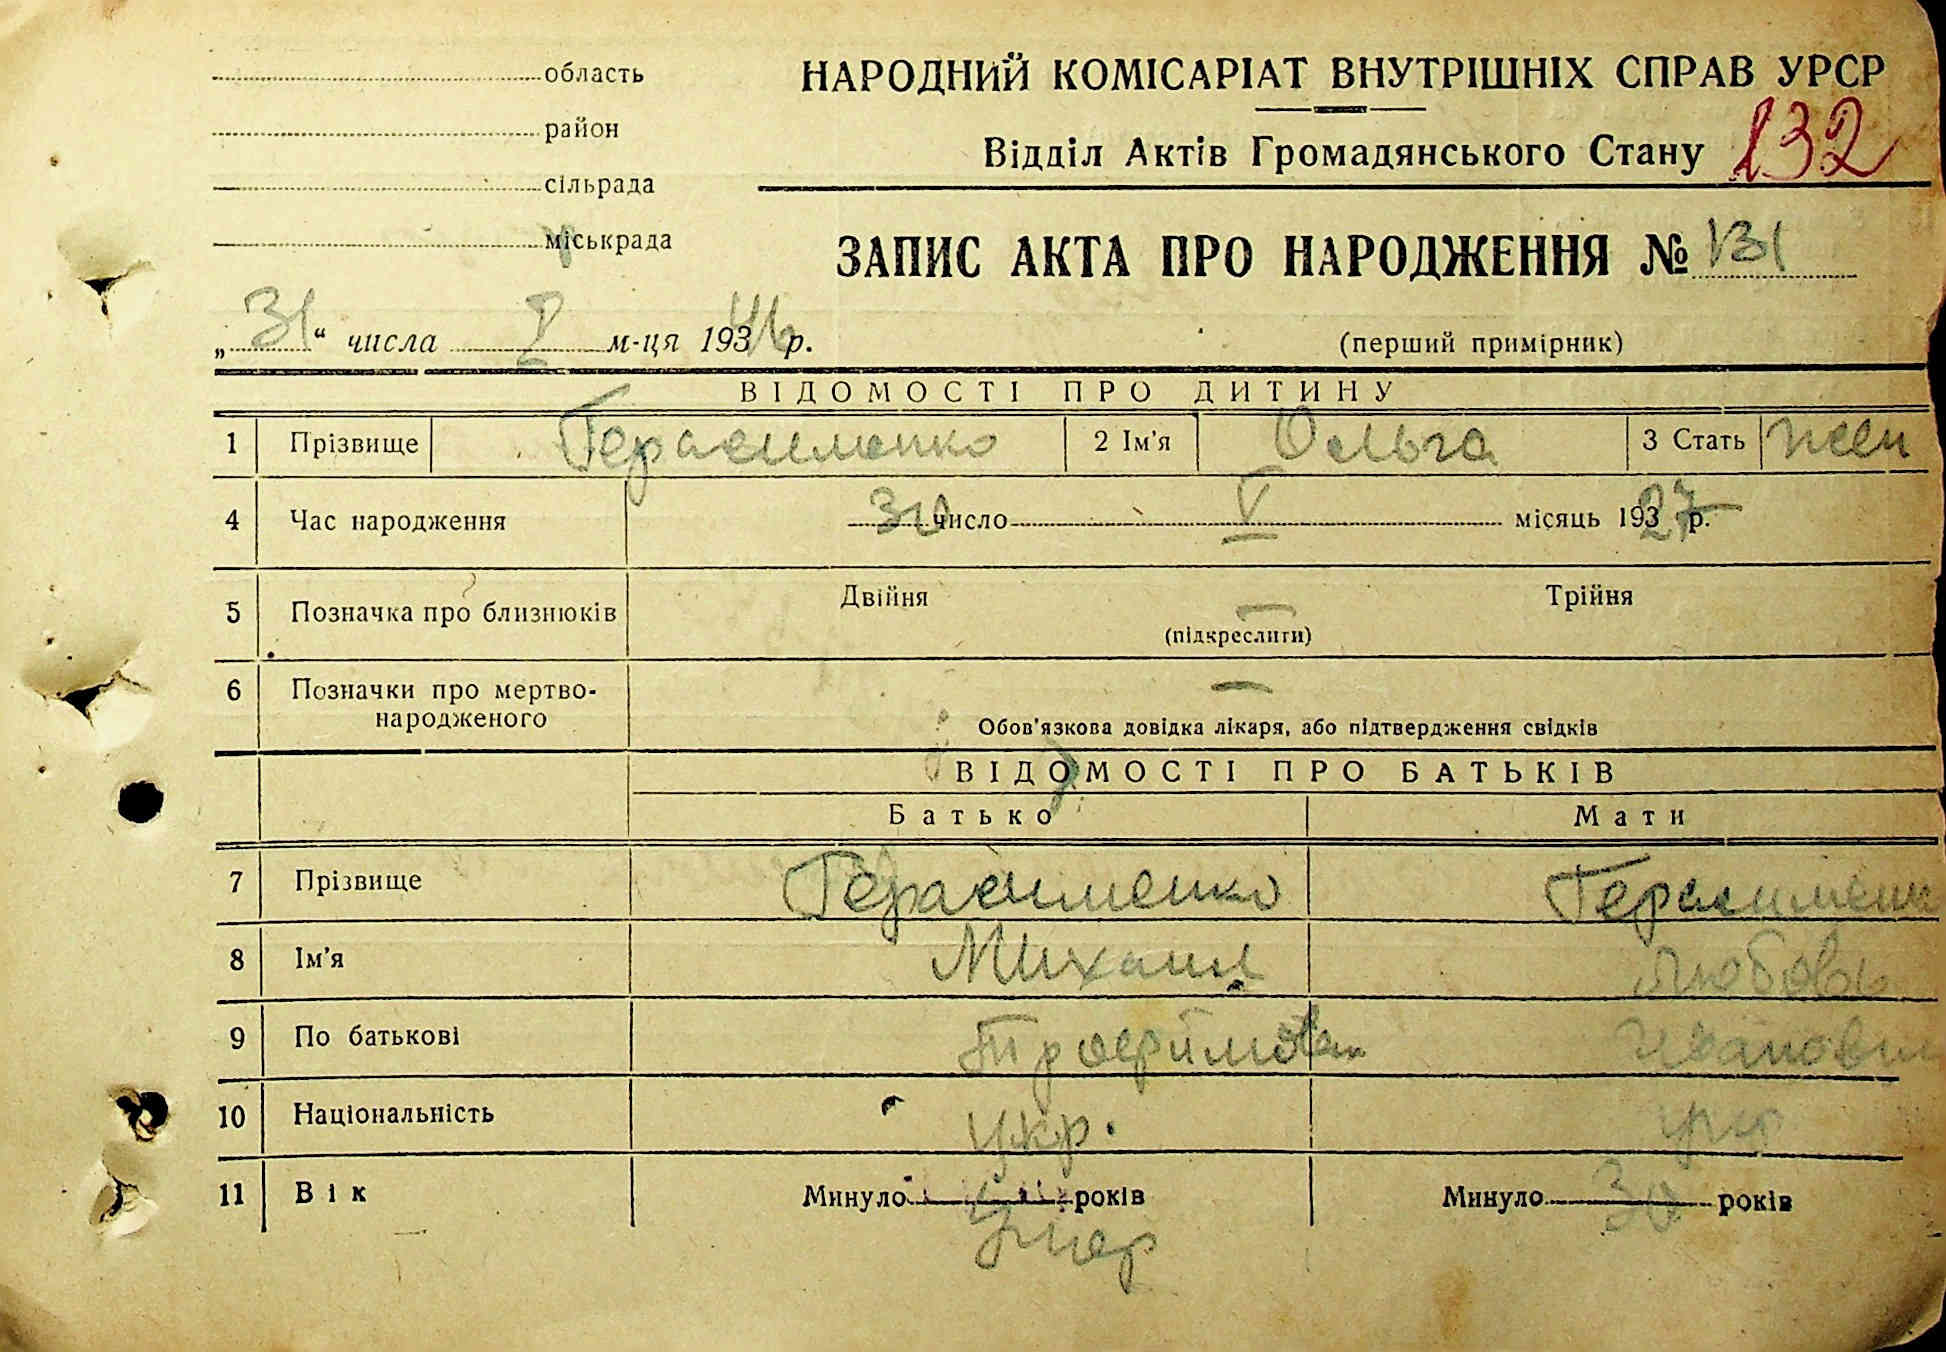 область
НАРОДНИЙ КОМІСАРІАТ ВНУТРІШНІХ СПРАВ УРСР
район
Відділ Актів Громадянського Стану 132
сільрада
міськрада
ЗАПИС АКТА ПРО НАРОДЖЕННЯ № 131
„31“ числа м-ця 193 46 р.
(перший примірник)
ВІДОМОСТІ ПРО ДИТИНУ
1 Прізвище Герасименко 2 Ім'я Ольга 3 Стать жен
4 Час народження 30 число V місяць 193 27 р.
5 Позначка про близнюків Двійня — Трійня
(підкреслити)
6 Позначки про мертво-
народженого —
Обов'язкова довідка лікаря, або підтвердження свідків
ВІДОМОСТІ ПРО БАТЬКІВ
Батько Мати
7 Прізвище Герасименко Герасименк
8 Ім'я Михаил Любовь
9 По батькові Ивановн
10 Національність укр. укр
11 Вік Минуло років Минуло 30 років
Умер